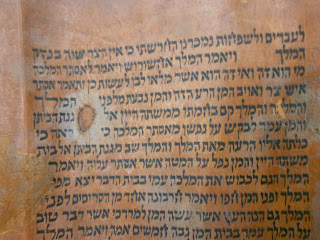 לעבדים ולשפחות נמכרנו החרשתי כי אין הצר שוה בנזק
המלך ויאמר המלך אחשורוש ויאמר לאסתר המלכה
מי הוא זה ואי זה הוא אשר מלאו לבו לעשות כן ותאמר אסתר
איש צר ואויב המן הרע הזה והמן נבעת מלפני המלך
והמלכה והמלך קם בחמתו ממשתה היין אל גנת הביתן
והמן עמד לבקש על נפשו מאסתר המלכה כי ראה כי
כלתה אליו הרעה מאת המלך והמלך שב מגנת הביתן אל בית
משתה היין והמן נפל על המטה אשר אסתר עליה ויאמר
המלך הגם לכבוש את המלכה עמי בבית הדבר יצא מפי
המלך ופני המן חפו ויאמר חרבונה אחד מן הסריסים לפני
המלך גם הנה העץ אשר עשה המן למרדכי אשר דבר טוב
על המלך עמד בבית המן גבה חמשים אמה ויאמר המלך